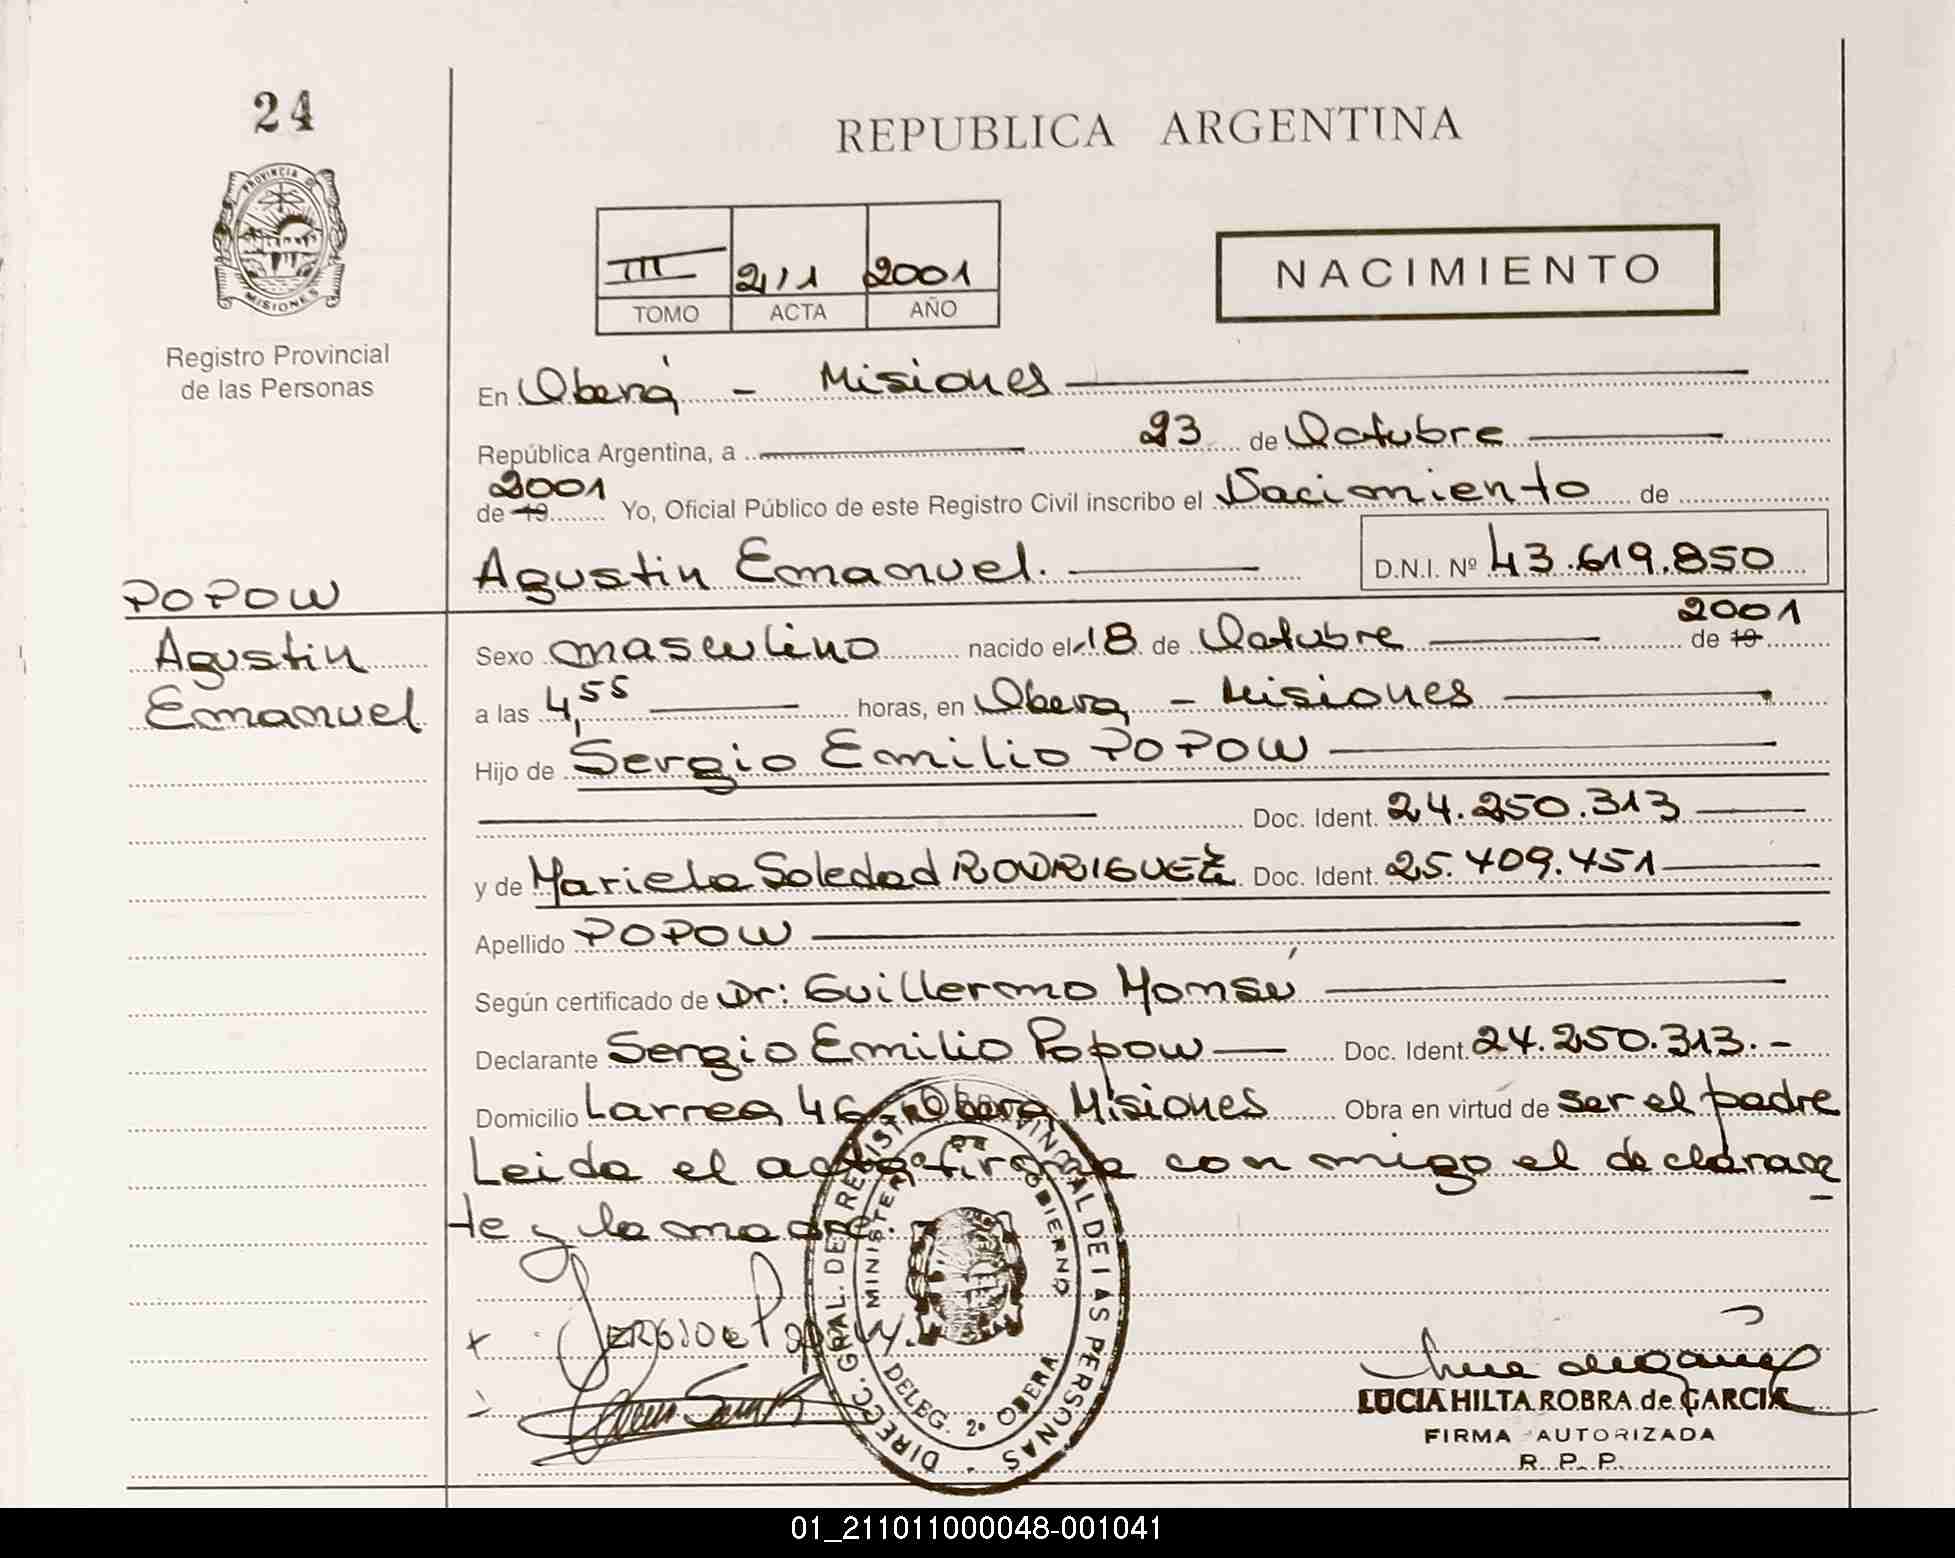 24
PROVINCIA DE
MISIONES
Registro Provincial
de las Personas
REPUBLICA ARGENTINA
III 211 2001
TOMO ACTA AÑO
NACIMIENTO
En Oberá - Misiones
República Argentina, a 23 de Octubre
2001
de 19 Yo, Oficial Público de este Registro Civil inscribo el Nacimiento de
Agustin Emanuel. D.N.I. Nº 43.619.850
POPOW
Agustin
Emanuel
2001
Sexo masculino nacido el 18 de Octubre de 19
a las 4,55 horas, en Oberá - Misiones
Hijo de Sergio Emilio POPOW
Doc. Ident. 24.250.313
y de Mariela Soledad RODRIGUEZ Doc. Ident. 25.409.451
Apellido POPOW
Según certificado de Dr: Guillermo Monsú
Declarante Sergio Emilio Popow Doc. Ident. 24.250.313.-
Domicilio Larrea 46 Oberá Misiones Obra en virtud de ser el padre
Leida el acta firma con migo el declaran
te y la madre.
DIRECC. GRAL. DEL REGISTRO PROVINCIAL DE LAS PERSONAS
MINISTERIO DE GOBIERNO
DELEG. 2º OBERA
SERGIO E Popow.
LUCIA HILTA ROBRA de GARCIA
FIRMA AUTORIZADA
R. P. P.
01_211011000048-001041